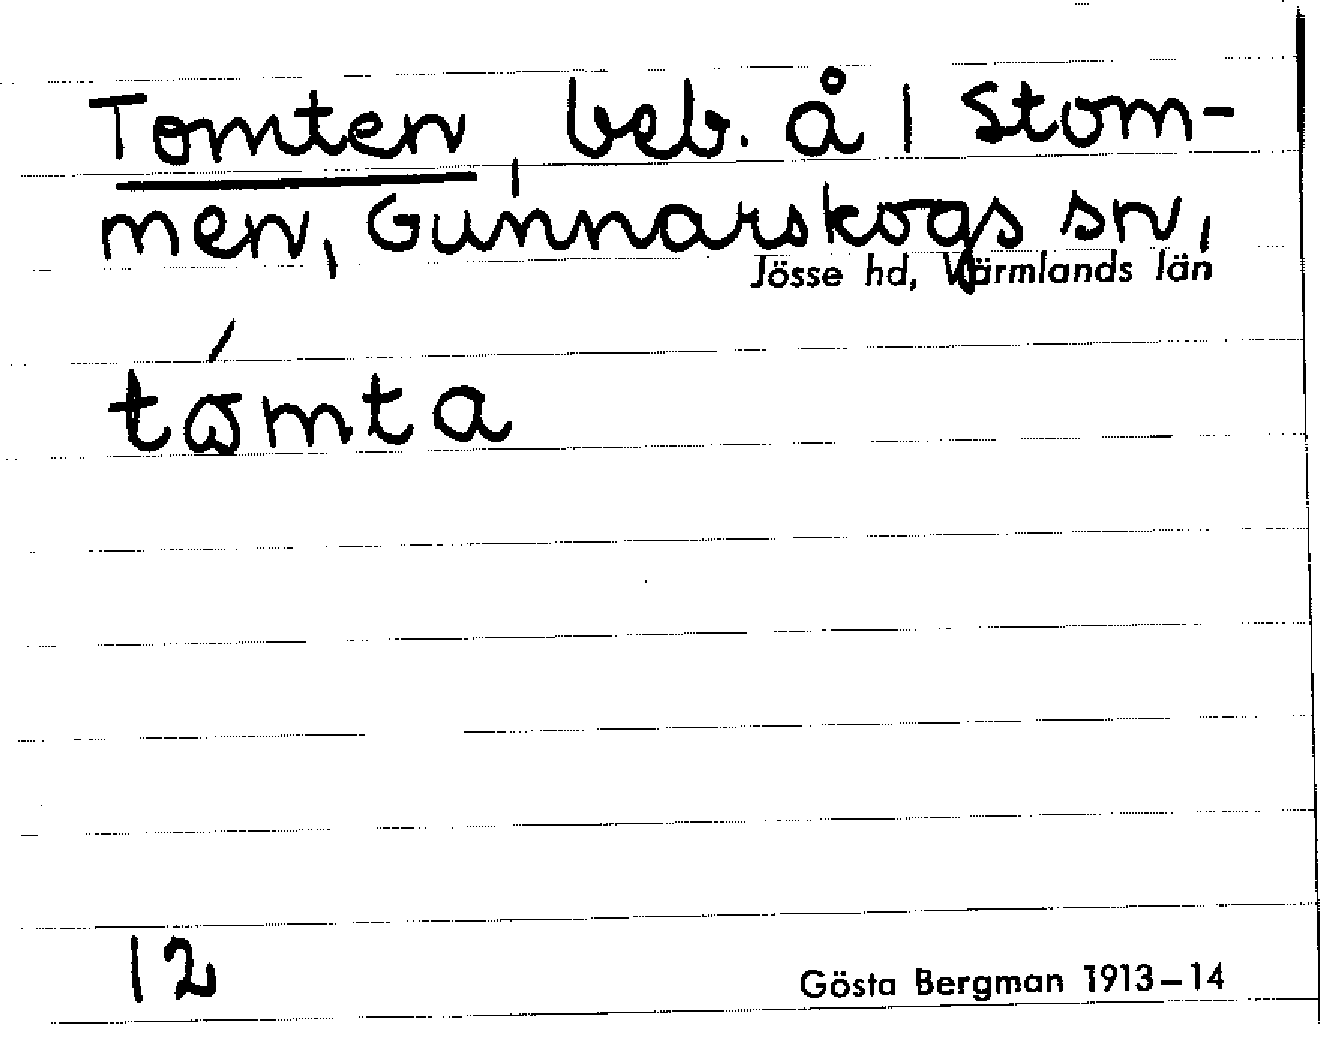 Tomten, beb. å 1 Stom-
men, Gunnarskogs sn,
Jösse hd, Värmlands län
tómta
12
Gösta Bergman 1913–14